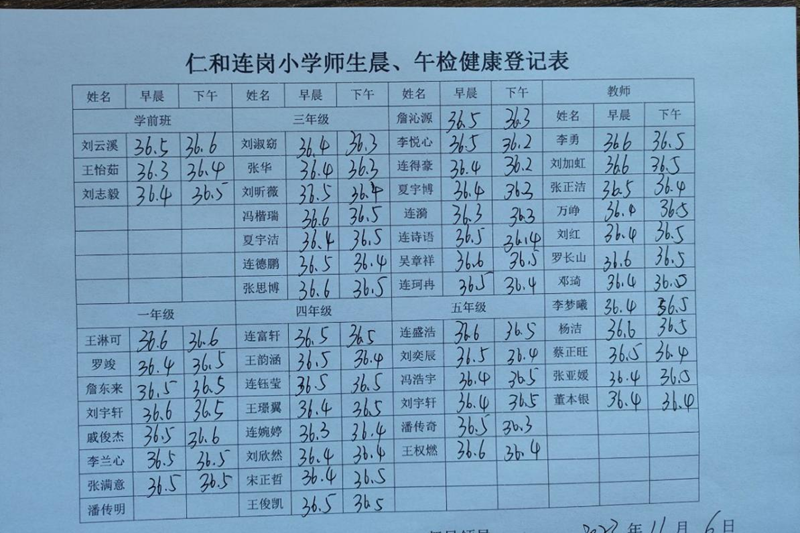 仁和连岗小学师生晨、午检健康登记表
姓名 早晨 下午 姓名 早晨 下午 姓名 早晨 下午 教师
学前班 三年级 詹沁源 36.5 36.3 姓名 早晨 下午
刘云溪 36.5 36.6 刘淑窈 36.4 36.3 李悦心 36.5 36.2 李勇 36.6 36.5
王怡茹 36.3 36.4 张华 36.4 36.3 连得豪 36.4 36.2 刘加虹 36.6 36.5
刘志毅 36.4 36.5 刘昕薇 36.5 36.4 夏宇博 36.4 36.3 张正洁 36.5 36.4
冯楷瑞 36.6 36.5 连漪 36.3 36.3 万峥 36.4 36.5
夏宇洁 36.4 36.5 连诗语 36.5 36.4 刘红 36.4 36.5
连德鹏 36.5 36.4 吴章祥 36.6 36.5 罗长山 36.6 36.5
张思博 36.6 36.5 连珂冉 36.5 36.4 邓琦 36.4 36.5
一年级 四年级 五年级 李梦曦 36.4 36.5
王淋可 36.6 36.6 连富轩 36.5 36.5 连盛浩 36.6 36.5 杨洁 36.6 36.5
罗竣 36.4 36.5 王韵涵 36.5 36.4 刘奕辰 36.5 36.4 蔡正旺 36.5 36.4
詹东来 36.5 36.5 连钰莹 36.5 36.5 冯浩宇 36.4 36.5 张亚媛 36.4 36.5
刘宇轩 36.6 36.5 王璟翼 36.4 36.5 刘宇轩 36.4 36.5 董本银 36.4 36.4
戚俊杰 36.5 36.6 连婉婷 36.3 36.4 潘传奇 36.5 36.3
李兰心 36.5 36.5 刘欣然 36.4 36.4 王权燃 36.6 36.4
张满意 36.5 36.5 宋正哲 36.4 36.5
潘传明 王俊凯 36.5 36.5
年 11 月 6 日